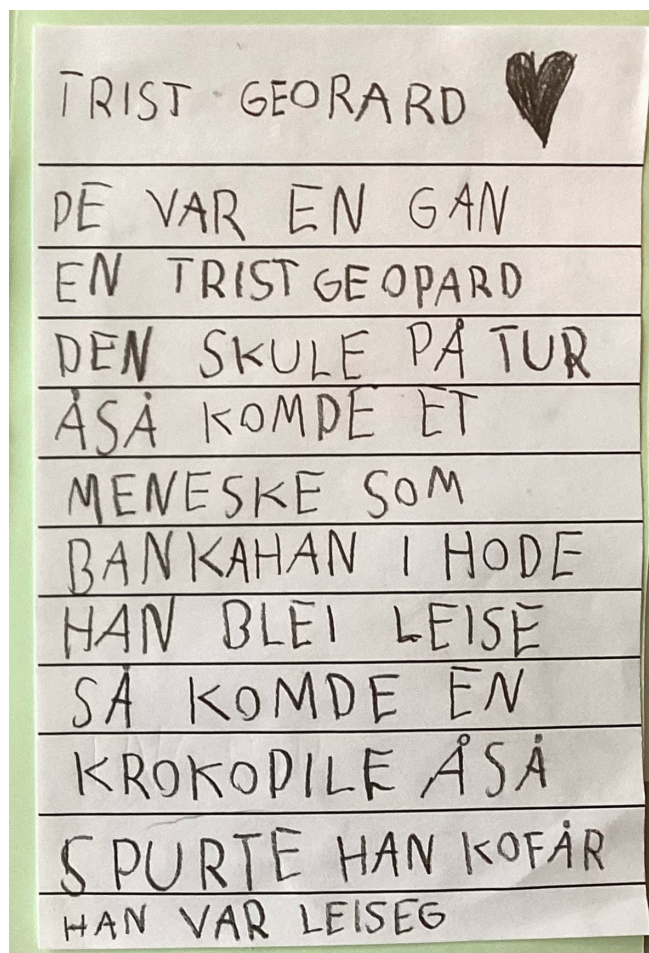 TRIST GEORARD
DE VAR EN GAN
EN TRIST GEOPARD
DEN SKULE PÅ TUR
ÅSÅ KOMDE ET
MENESKE SOM
BANKAHAN I HODE
HAN BLEI LEISE
SÅ KOMDE EN
KROKODILE ÅSÅ
SPURTE HAN KOFÅR
HAN VAR LEISEG